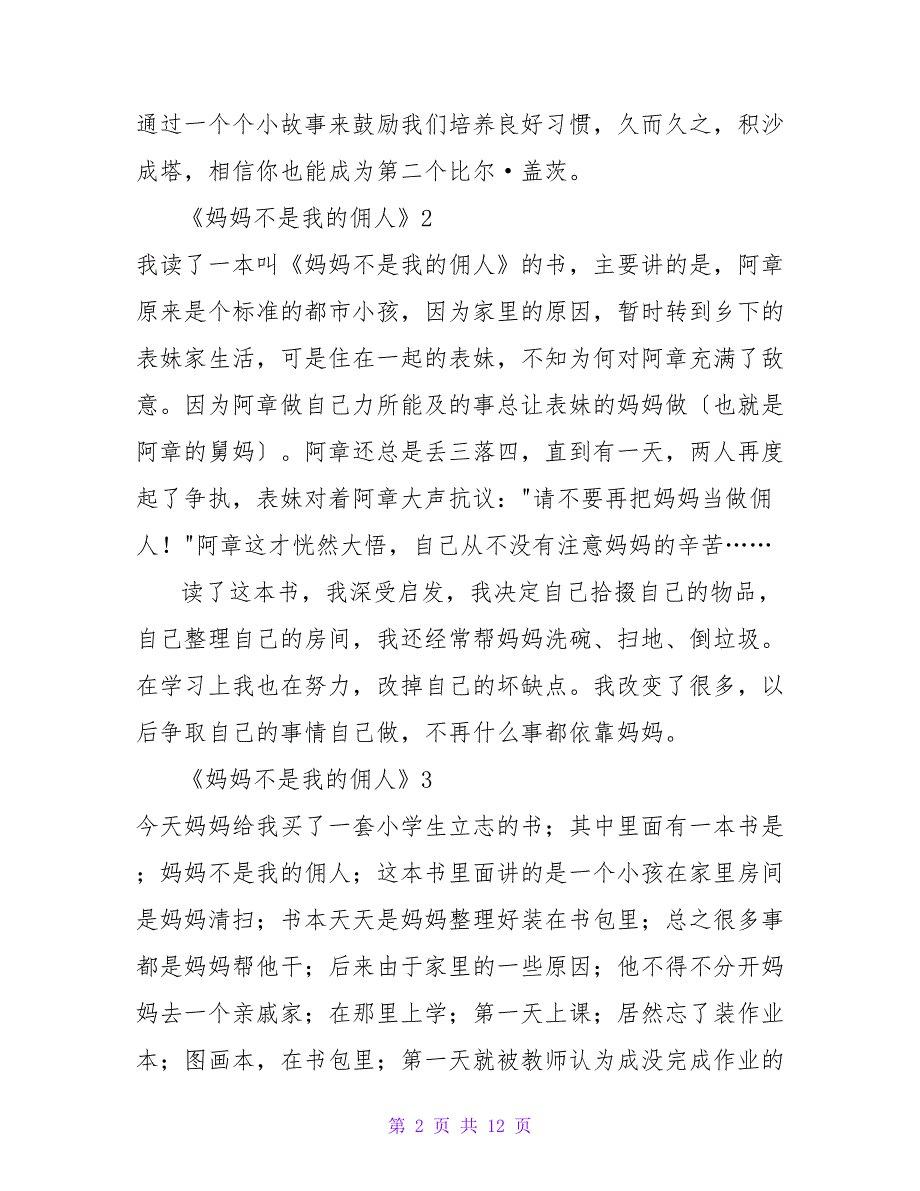 通过一个个小故事来鼓励我们培养良好习惯，久而久之，积沙
成塔，相信你也能成为第二个比尔·盖茨。
《妈妈不是我的佣人》2
我读了一本叫《妈妈不是我的佣人》的书，主要讲的是，阿章
原来是个标准的都市小孩，因为家里的原因，暂时转到乡下的
表妹家生活，可是住在一起的表妹，不知为何对阿章充满了敌
意。因为阿章做自己力所能及的事总让表妹的妈妈做〔也就是
阿章的舅妈〕。阿章还总是丢三落四，直到有一天，两人再度
起了争执，表妹对着阿章大声抗议："请不要再把妈妈当做佣
人！"阿章这才恍然大悟，自己从不没有注意妈妈的辛苦……
读了这本书，我深受启发，我决定自己拾掇自己的物品，
自己整理自己的房间，我还经常帮妈妈洗碗、扫地、倒垃圾。
在学习上我也在努力，改掉自己的坏缺点。我改变了很多，以
后争取自己的事情自己做，不再什么事都依靠妈妈。
《妈妈不是我的佣人》3
今天妈妈给我买了一套小学生立志的书；其中里面有一本书是
；妈妈不是我的佣人；这本书里面讲的是一个小孩在家里房间
是妈妈清扫；书本天天是妈妈整理好装在书包里；总之很多事
都是妈妈帮他干；后来由于家里的一些原因；他不得不分开妈
妈去一个亲戚家；在那里上学；第一天上课；居然忘了装作业
本；图画本，在书包里；第一天就被教师认为成没完成作业的
第 2 页 共 12 页